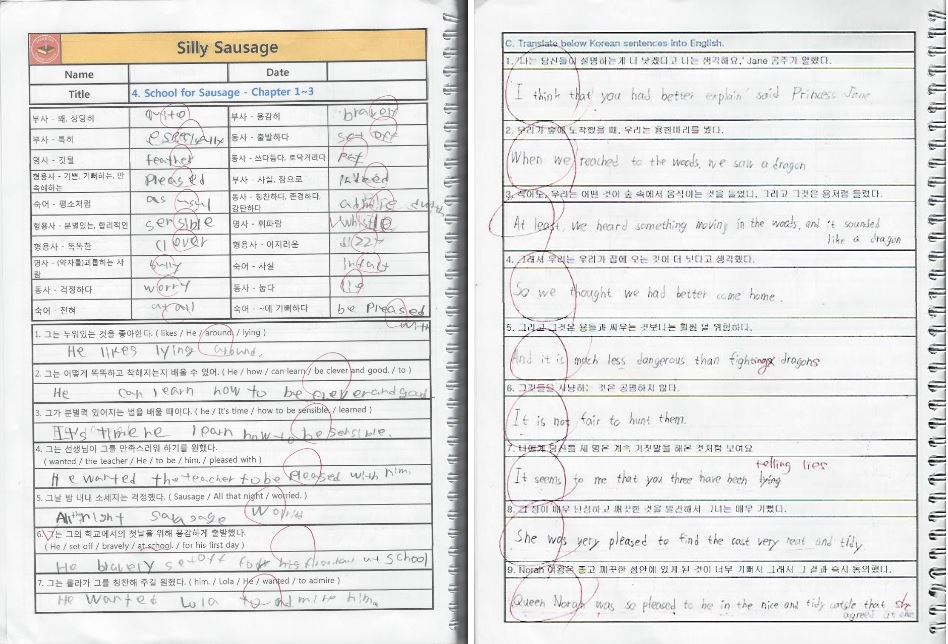 Silly Sausage
Name
Date
Title
4. School for Sausage - Chapter 1~3
부사 - 꽤, 상당히
부사 - 용감히 bravely
부사 - 특히 especially
동사 - 출발하다 set off
명사 - 깃털 feather
동사 - 쓰다듬다, 토닥거리다 Pat
형용사 - 기쁜, 기뻐하는, 만족해하는 Pleased
부사 - 사실, 참으로 indeed
숙어 - 평소처럼 as usual
동사 - 칭찬하다, 존경하다, 감탄하다 admire
형용사 - 분별있는, 합리적인 sensible
명사 - 휘파람 whistle
형용사 - 똑똑한 clever
형용사 - 어지러운 dizzy
명사 - (약자를)괴롭히는 사람 bully
숙어 - 사실 Infact
동사 - 걱정하다 worry
동사 - 눕다 lie
숙어 - 전혀 atall
숙어 - ~에 기뻐하다 be Pleased with
1. 그는 누워있는 것을 좋아한다. ( likes / He / around. / lying )
He likes lying around.
2. 그는 어떻게 똑똑하고 착해지는지 배울 수 있어. ( He / how / can learn / be clever and good. / to )
He can learn how to be clever and good
3. 그가 분별력 있어지는 법을 배울 때이다. ( he / It's time / how to be sensible. / learned )
It's time he learn how to be sensible.
4. 그는 선생님이 그를 만족스러워 하기를 원했다.
( wanted / the teacher / He / to be / him. / pleased with )
He wanted the teacher to be Pleased with him.
5. 그날 밤 내내 소세지는 걱정했다. ( Sausage / All that night / worried. )
sausage
6. 그는 그의 학교에서의 첫날을 위해 용감하게 출발했다.
( He / set off / bravely / at school. / for his first day )
He bravely set off for his at school
7. 그는 롤라가 그를 칭찬해 주길 원했다. ( him. / Lola / He / wanted / to admire )
He wanted Lola to admire him.
C. Translate below Korean sentences into English.
1. '나는 당신들이 설명하는게 더 낫겠다고 나는 생각해요,' Jane 공주가 말했다.
I think that you had better explain' said Princess Jane
2. 우리가 숲에 도착했을 때, 우리는 용한마리를 봤다.
When we reached to the woods, we saw a dragon
3. 적어도, 우리는 어떤 것이 숲 속에서 움직이는 것을 들었다. 그리고 그것은 용처럼 들렸다.
At least, we heard something moving in the woods, and it sounded
like a dragon
4. 그래서 우리는 우리가 집에 오는 것이 더 낫다고 생각했다.
So we thought we had better come home.
5. 그리고 그것은 용들과 싸우는 것보다는 훨씬 덜 위험하다.
And it is much less dangerous than fighting dragons
6. 그것들을 사냥하는 것은 공평하지 않다.
It is not fair to hunt them.
7. 나에게 당신들 세 명은 계속 거짓말을 해온 것처럼 보여요
telling lies
It seems to me that you three have been lying
8. 그 성이 매우 단정하고 깨끗한 것을 발견해서 그녀는 매우 기뻤다.
She was very pleased to find the cast very neat and tidy
9. Norah 여왕은 좋고 깨끗한 성안에 있게 된 것이 너무 기뻐서 그래서 그 결과 즉시 동의했다.
Queen Norah was so pleased to be in the nice and tidy catsle that she
agreed at one